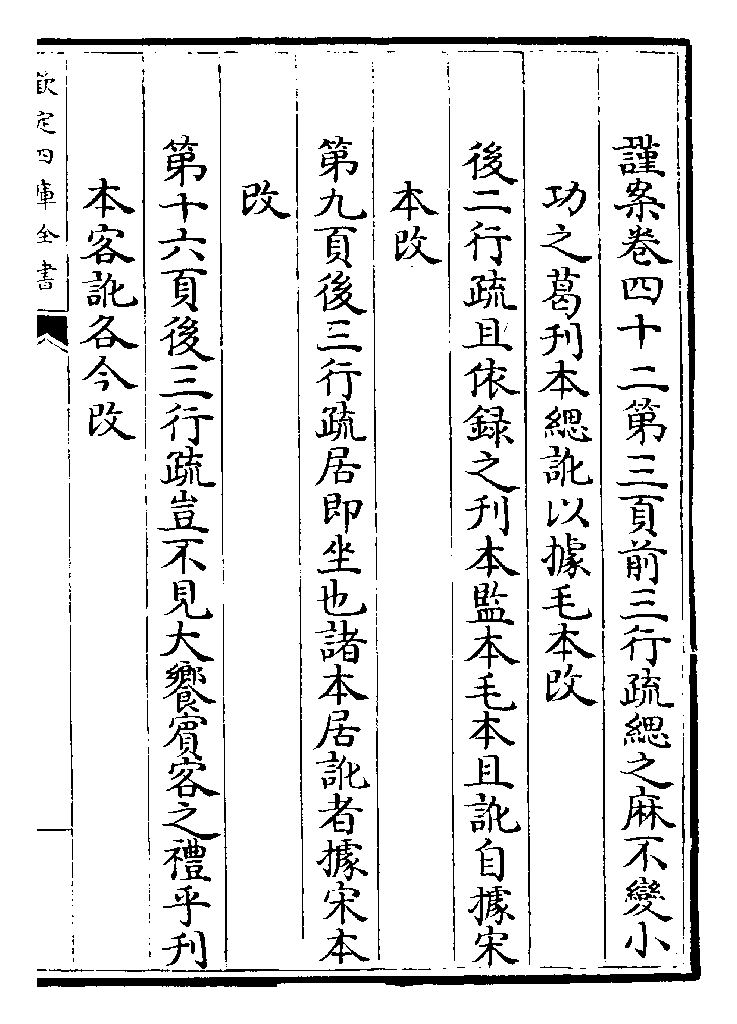 謹案卷四十二第三頁前三行疏緦之麻不變小
功之葛刊本緦訛以據毛本改
後二行疏且依録之刊本監本毛本且訛自據宋
本改
第九頁後三行疏居即坐也諸本居訛者據宋本
改
第十六頁後三行疏豈不見大饗賓客之禮乎刊
本客訛各今改
欽定四庫全書